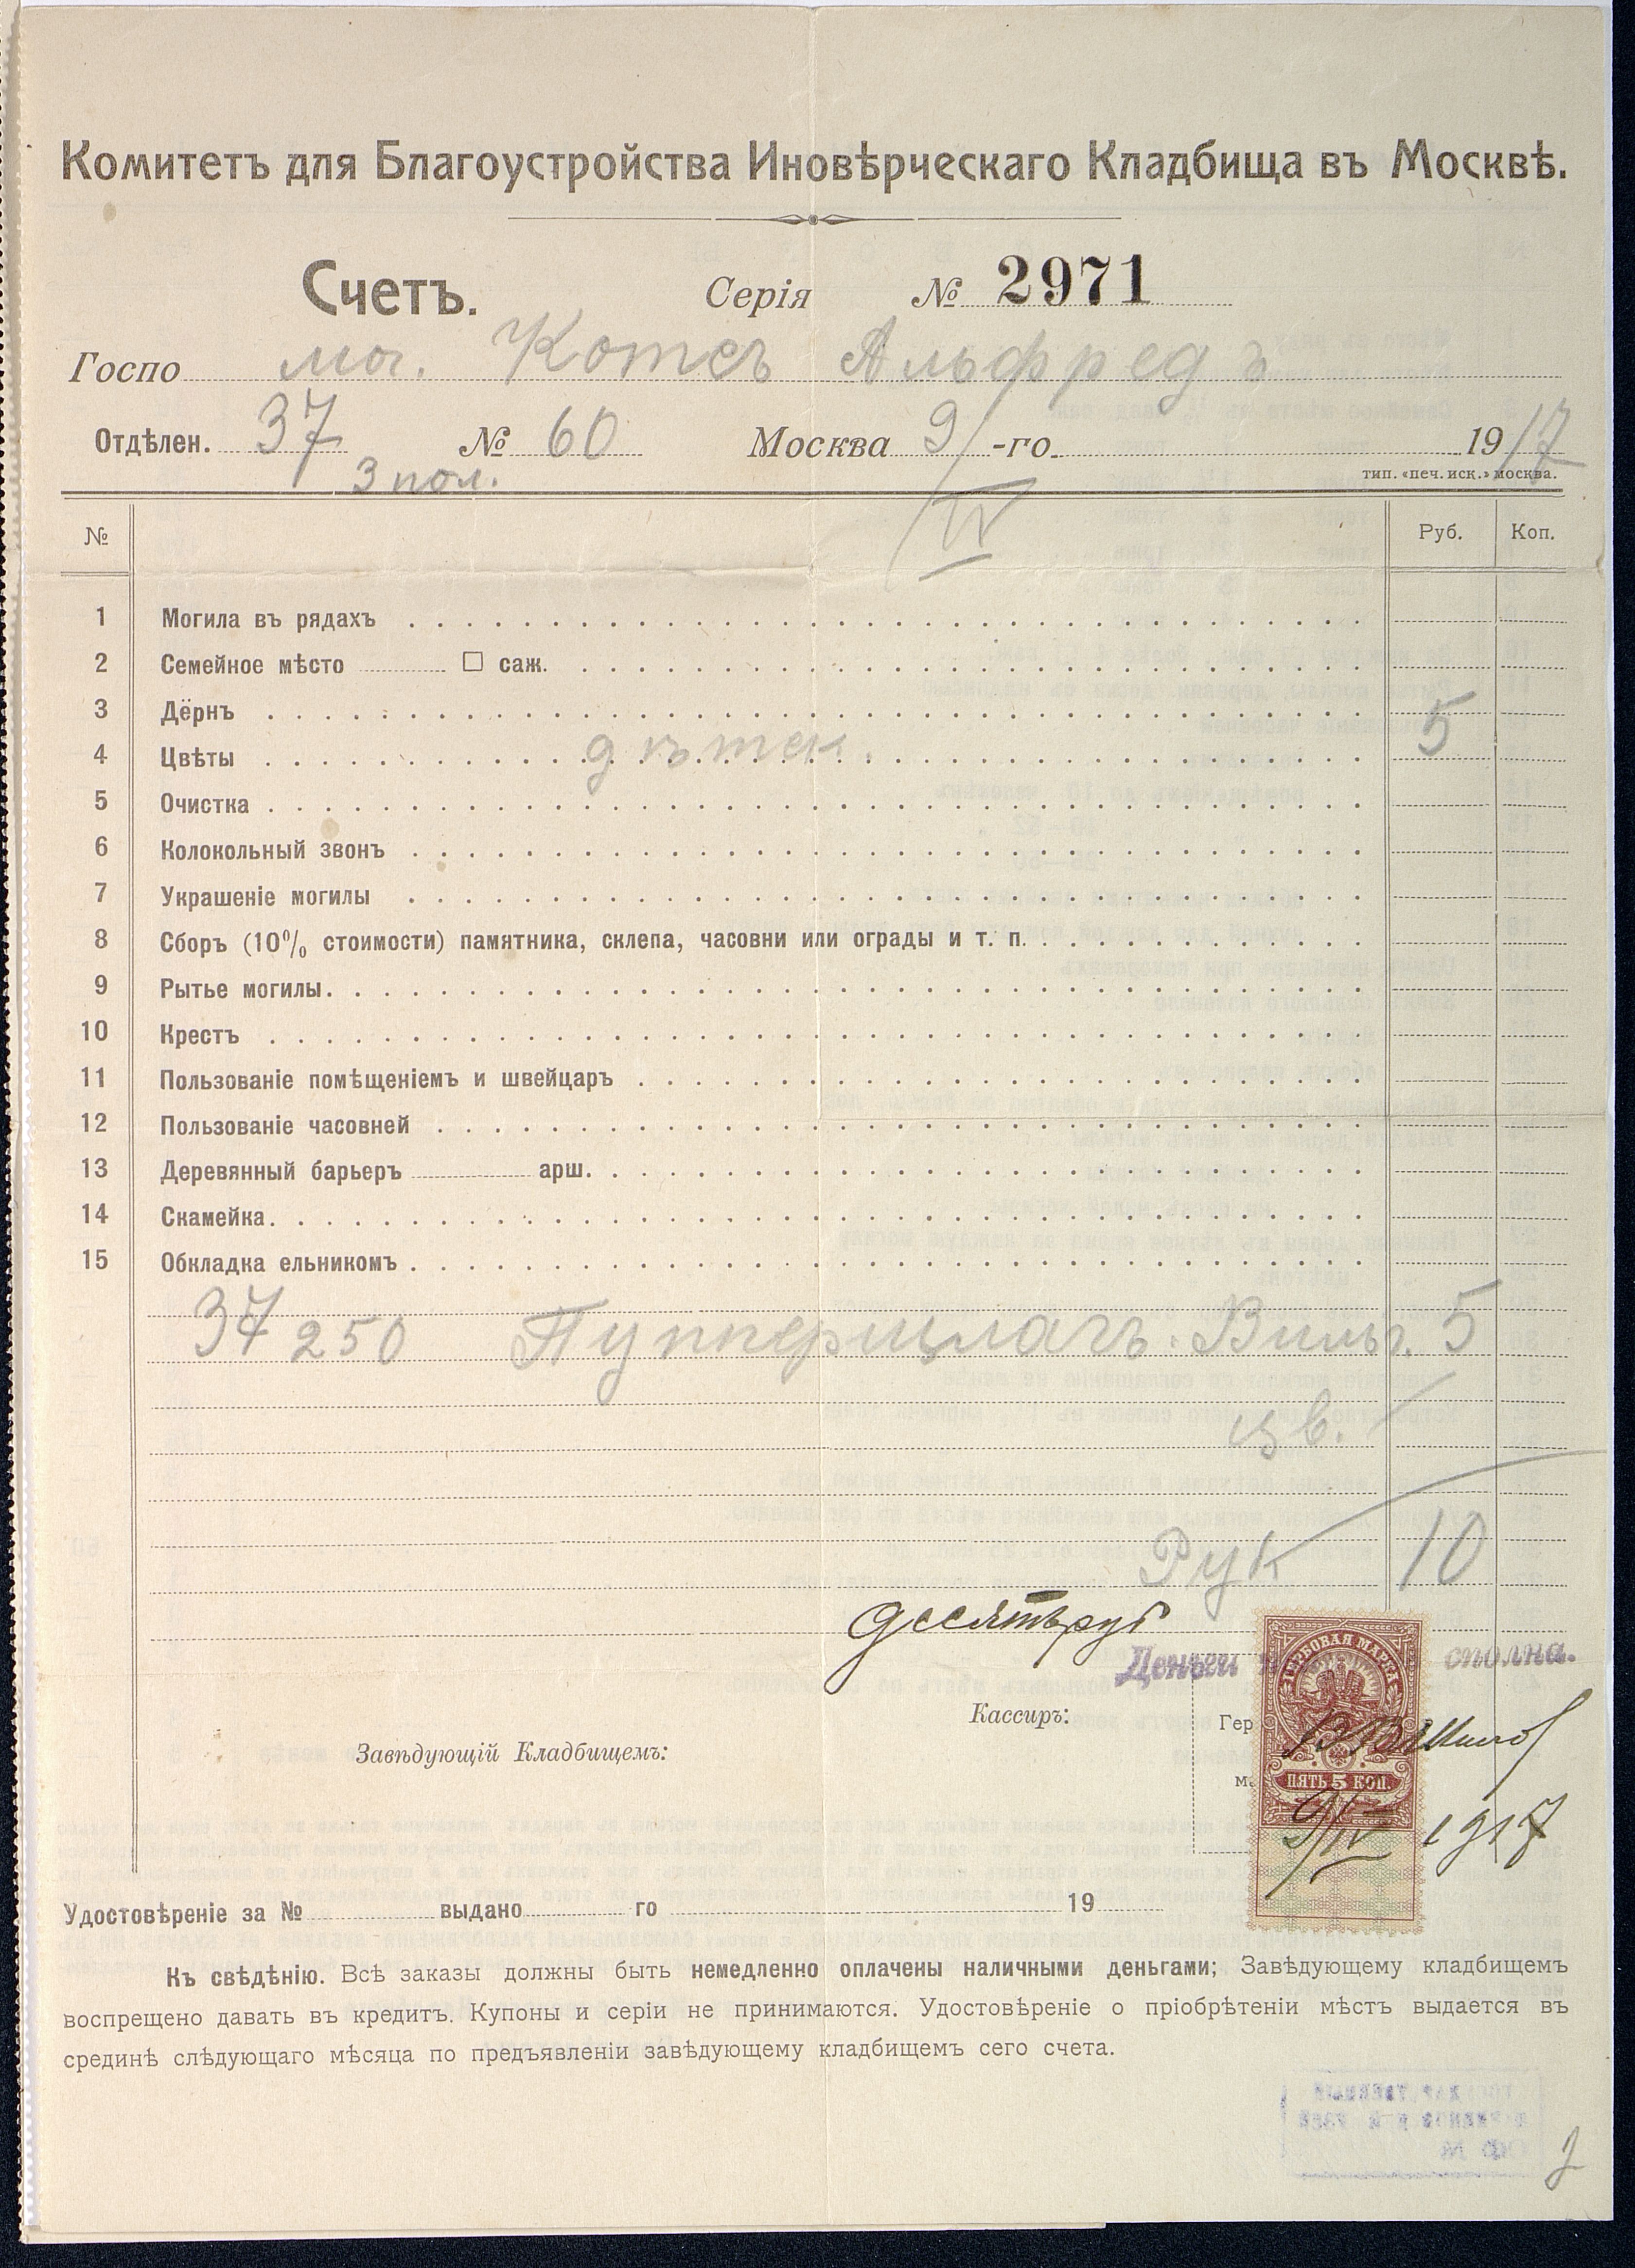 Комитетъ для Благоустройства Иновѣрческаго Кладбища въ Москвѣ.
Счетъ. Серія № 2971
Госпо мог. Котсъ Альфредъ
Отдѣлен. 37 № 60 Москва 9/-го 1917
3 пол. IV
тип. «печ. иск.» москва.
№ Руб. Коп.
1 Могила въ рядахъ
2 Семейное мѣсто □ саж.
3 Дёрнъ 5
4 Цвѣты
5 Очистка
6 Колокольный звонъ
7 Украшеніе могилы
8 Сборъ (10% стоимости) памятника, склепа, часовни или ограды и т. п.
9 Рытье могилы.
10 Крестъ
11 Пользованіе помѣщеніемъ и швейцаръ
12 Пользованіе часовней
13 Деревянный барьеръ арш.
14 Скамейка.
15 Обкладка ельникомъ
37 250 5
цв.
Рук 10
десять руб
Деньги сполна.
ГЕРБОВАЯ МАРКА
Кассиръ: Гер
Завѣдующій Кладбищемъ:
ПЯТЬ 5 КОП.
9/IV 1917
Удостовѣреніе за № выдано го 19
Къ свѣдѣнію. Всѣ заказы должны быть немедленно оплачены наличными деньгами; Завѣдующему кладбищемъ
воспрещено давать въ кредитъ. Купоны и серіи не принимаются. Удостовѣреніе о пріобрѣтеніи мѣстъ выдается въ
срединѣ слѣдующаго мѣсяца по предъявленіи завѣдующему кладбищемъ сего счета.